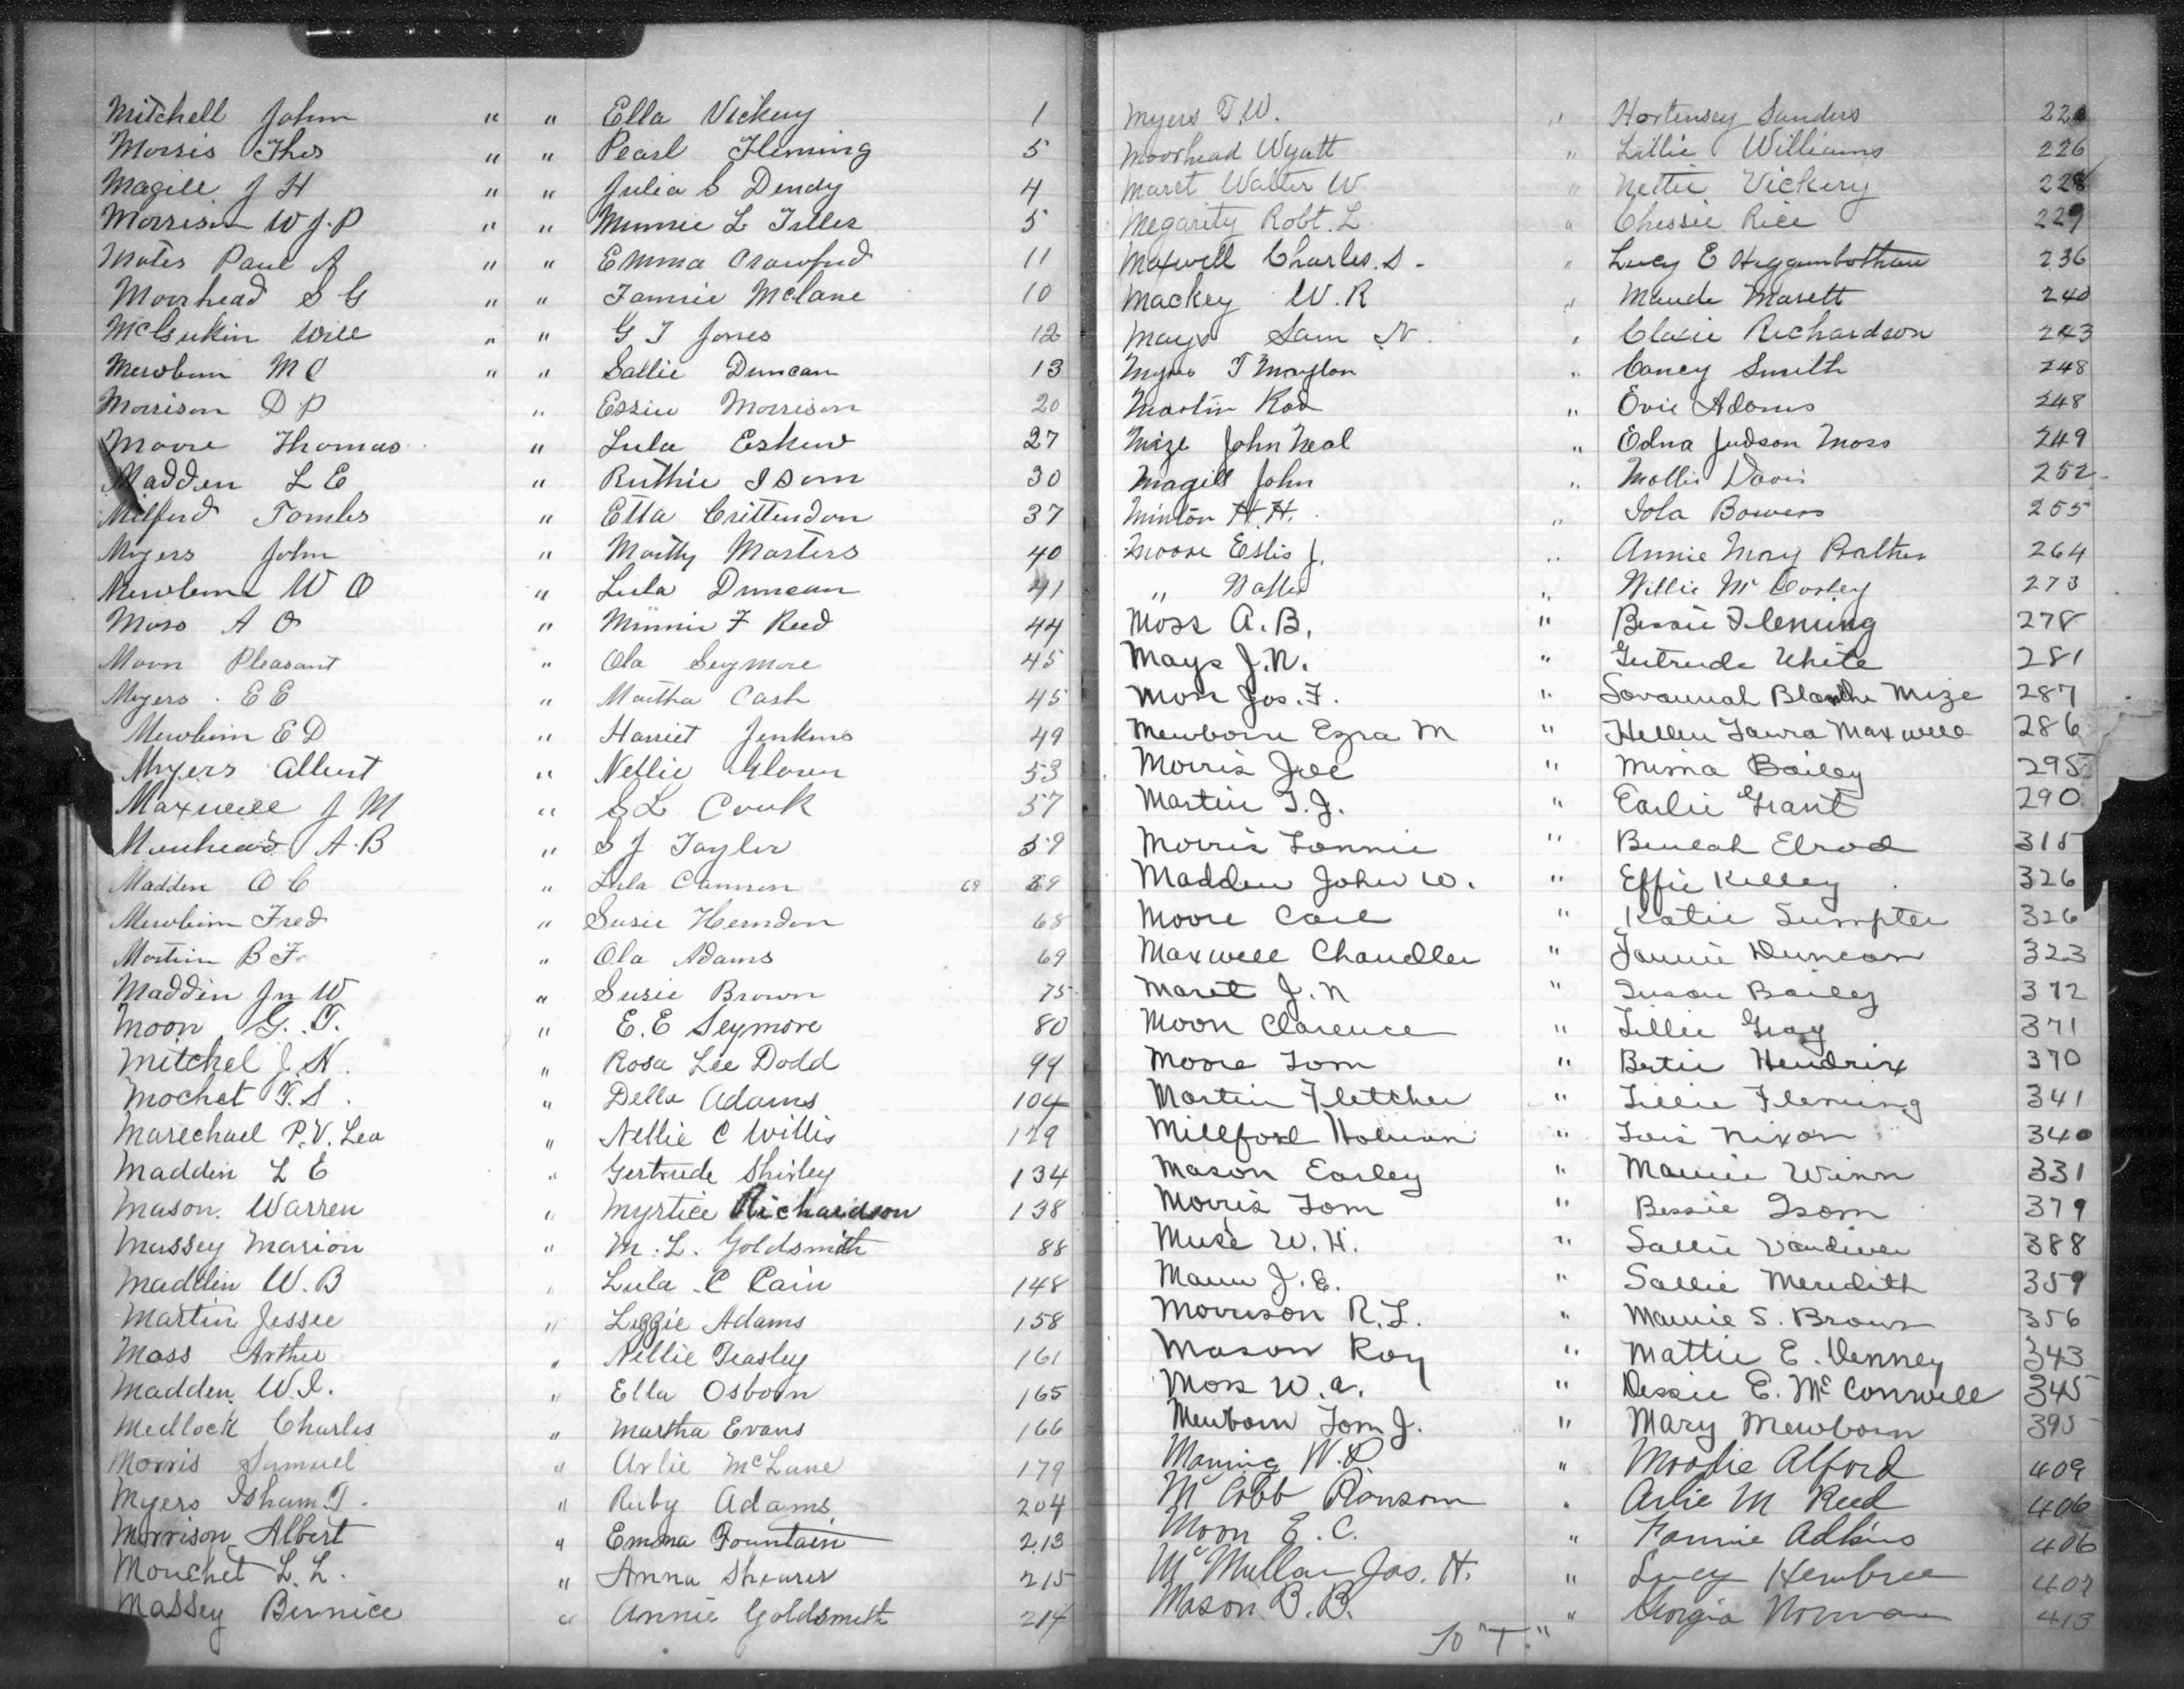 Mitchell John " " Ella Vickery 1
Morris Thos " " Pearl Fleming 5
Magill J H " " Julia S Dendy 4
Morrison W J. P " " Minnie L Tiller 5
Mates Paul A " " Emma Crawford 11
Moorhead S G " " Fannie McLane 10
McGukin Will " " G T Jones 12
Mewborn M C " " Sallie Duncan 13
Morrison D P " Essie Morrison 20
Moore Thomas " Lula Eskew 27
Madden L E " Ruthie Isom 30
Milford Tombs " Etta Crittendon 37
Myers John " Marthy Masters 40
Mewborn W O " Lula Duncan 41
Moss A O " Minnie F Reed 44
Moon Pleasant " Ola Seymore 45
Myers E E " Martha Cash 45
Mewborn E D " Harriet Jenkins 49
Myers Albert " Nellie Glover 53
Maxwell J M " S L Cook 57
Muirhead A. B " S J Taylor 59
Madden O C " Lula Cannon 69
Mewborn Fred " Susie Herndon 68
Martin B F. " Ola Adams 69
Madden Jn W " Susie Brown 75
Moon G. T. " E. E Seymore 80
Mitchel J. N. " Rosa Lee Dodd 99
Mochet T. S. " Della Adams 104
Marechael P. V. Lea " Nellie C Willis 129
Madden L E " Gertrude Shirley 134
Mason Warren " Myrtice Richardson 138
Massey Marion " M. L. Goldsmith 88
Madden W. B " Lula C Cain 148
Martin Jessee " Lizzie Adams 158
Moss Arthur " Nellie Teasley 161
Madden W. I. " Ella Osborn 165
Medlock Charles " Martha Evans 166
Morris Samuel " Arlie McLane 179
Myers Isham T. " Ruby Adams 204
Morrison Albert " Emma Fountain 213
Mouchet L. L. " Anna Shearer 215
Massey Bernice " Annie Goldsmith 214
Myers T. W. " Hortensey Sanders 220
Moorhead Wyatt " Lillie Williams 226
Maret Walter W " Nettie Vickery 228
Megarity Robt. L " Chessie Rice 229
Maxwell Charles. S. " Lucy E Higgumbotham 236
Mackey W. R " Maude Marett 240
Mays Sam N. " Claxie Richardson 243
Myers T " Caney Smith 248
Martin Rod " Evie Adams 248
Mize John Neal " Edna Judson Moss 249
Magill John " Mollie Davis 252
Minton H. H. " Iola Bowers 255
Moore Estis J. " Annie May Prather 264
" Walter " Willie McCorley 273
Moss A. B. " Bessie Fleming 278
Mays J. N. " Gertrude White 281
Moss Jos. F. " Savannah Blanche Mize 287
Mewborn Ezra M " Hellen Laura Maxwell 286
Morris Joe " Mima Bailey 295
Martin T. J. " Earlie Grant 290
Morris Lonnie " Beulah Elrod 315
Madden John W. " Effie Kelley 326
Moore Carl " Katie Sumpter 326
Maxwell Chandler " Fannie Duncan 323
Maret J. N " Susan Bailey 372
Moon Clarence " Lillie Gray 371
Moore Tom " Bertie Hendrix 370
Martin Fletcher " Lillie Fleming 341
Millford Holman " Lois Nixon 340
Mason Earley " Mamie Winn 331
Morris Tom " Bessie Isom 379
Muse W. H. " Sallie Vandiver 388
Mann J. E. " Sallie Meredith 359
Morrison R. L. " Mamie S. Brown 356
Mason Roy " Mattie E. Denney 343
Moss W. A. " Dessie E. McConnell 345
Mewborn Tom J. " Mary Mewborn 395
Maning W. P. " Alford 409
McCobb Ransom " Arlie M Reed 406
Moon E. C. " Fannie Adkins 406
McMullan Jos. H. " Lucy Hembree 407
Mason B. B. " Georgia Norman 413
To "T."